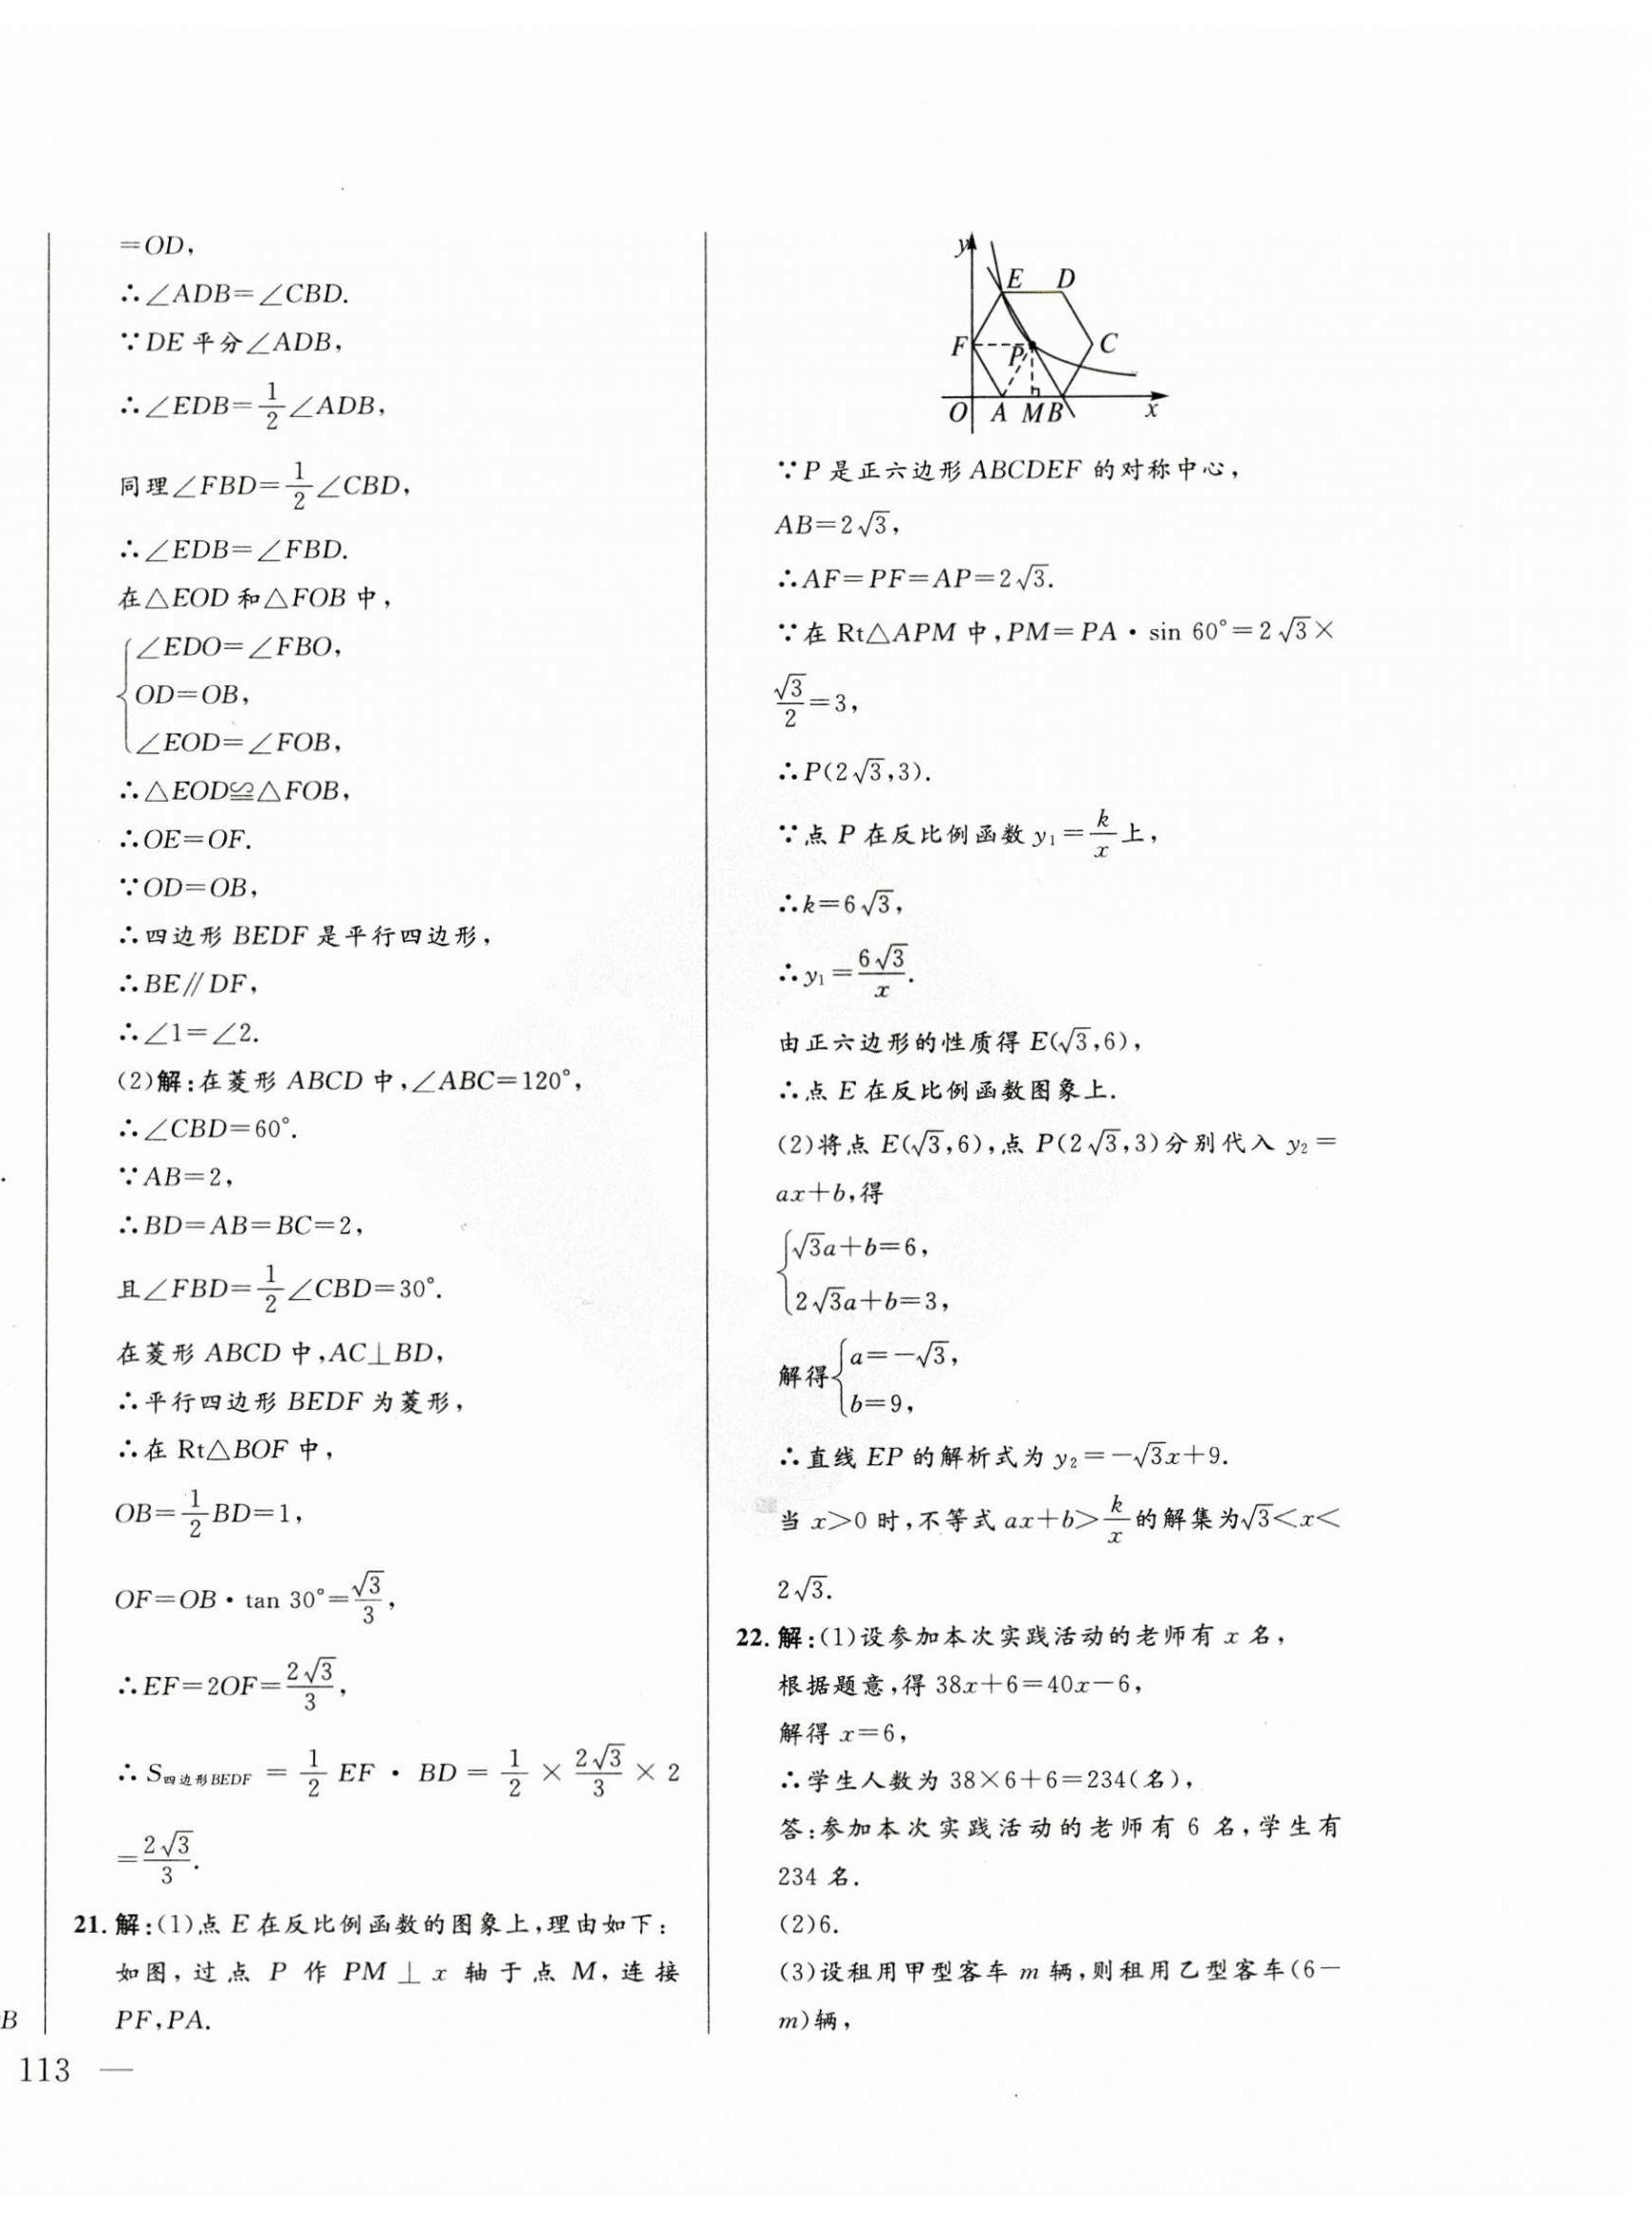 =OD,
∴∠ADB=∠CBD.
∵DE平分∠ADB,
∴∠EDB=1/2∠ADB,
同理∠FBD=1/2∠CBD,
∴∠EDB=∠FBD.
在△EOD和△FOB中,
{∠EDO=∠FBO,
OD=OB,
∠EOD=∠FOB,
∴△EOD≌△FOB,
∴OE=OF.
∵OD=OB,
∴四边形BEDF是平行四边形,
∴BE∥DF,
∴∠1=∠2.
(2)解:在菱形ABCD中,∠ABC=120°,
∴∠CBD=60°.
∵AB=2,
∴BD=AB=BC=2,
且∠FBD=1/2∠CBD=30°.
在菱形ABCD中,AC⊥BD,
∴平行四边形BEDF为菱形,
∴在Rt△BOF中,
OB=1/2BD=1,
OF=OB·tan 30°=√3/3,
∴EF=2OF=2√3/3,
∴S四边形BEDF=1/2EF·BD=1/2×2√3/3×2
=2√3/3.
21.解:(1)点E在反比例函数的图象上,理由如下:
如图,过点P作PM⊥x轴于点M,连接
PF,PA.
B
113 —
y
E D
F P C
O A M B x
∵P是正六边形ABCDEF的对称中心,
AB=2√3,
∴AF=PF=AP=2√3.
∵在Rt△APM中,PM=PA·sin 60°=2√3×
√3/2=3,
∴P(2√3,3).
∵点P在反比例函数y₁=k/x上,
∴k=6√3,
∴y₁=6√3/x.
由正六边形的性质得E(√3,6),
∴点E在反比例函数图象上.
(2)将点E(√3,6),点P(2√3,3)分别代入y₂=
ax+b,得
{√3a+b=6,
2√3a+b=3,
解得{a=-√3,
b=9,
∴直线EP的解析式为y₂=-√3x+9.
当x>0时,不等式ax+b>k/x的解集为√3<x<
2√3.
22.解:(1)设参加本次实践活动的老师有x名,
根据题意,得38x+6=40x-6,
解得x=6,
∴学生人数为38×6+6=234(名),
答:参加本次实践活动的老师有6名,学生有
234名.
(2)6.
(3)设租用甲型客车m辆,则租用乙型客车(6-
m)辆,